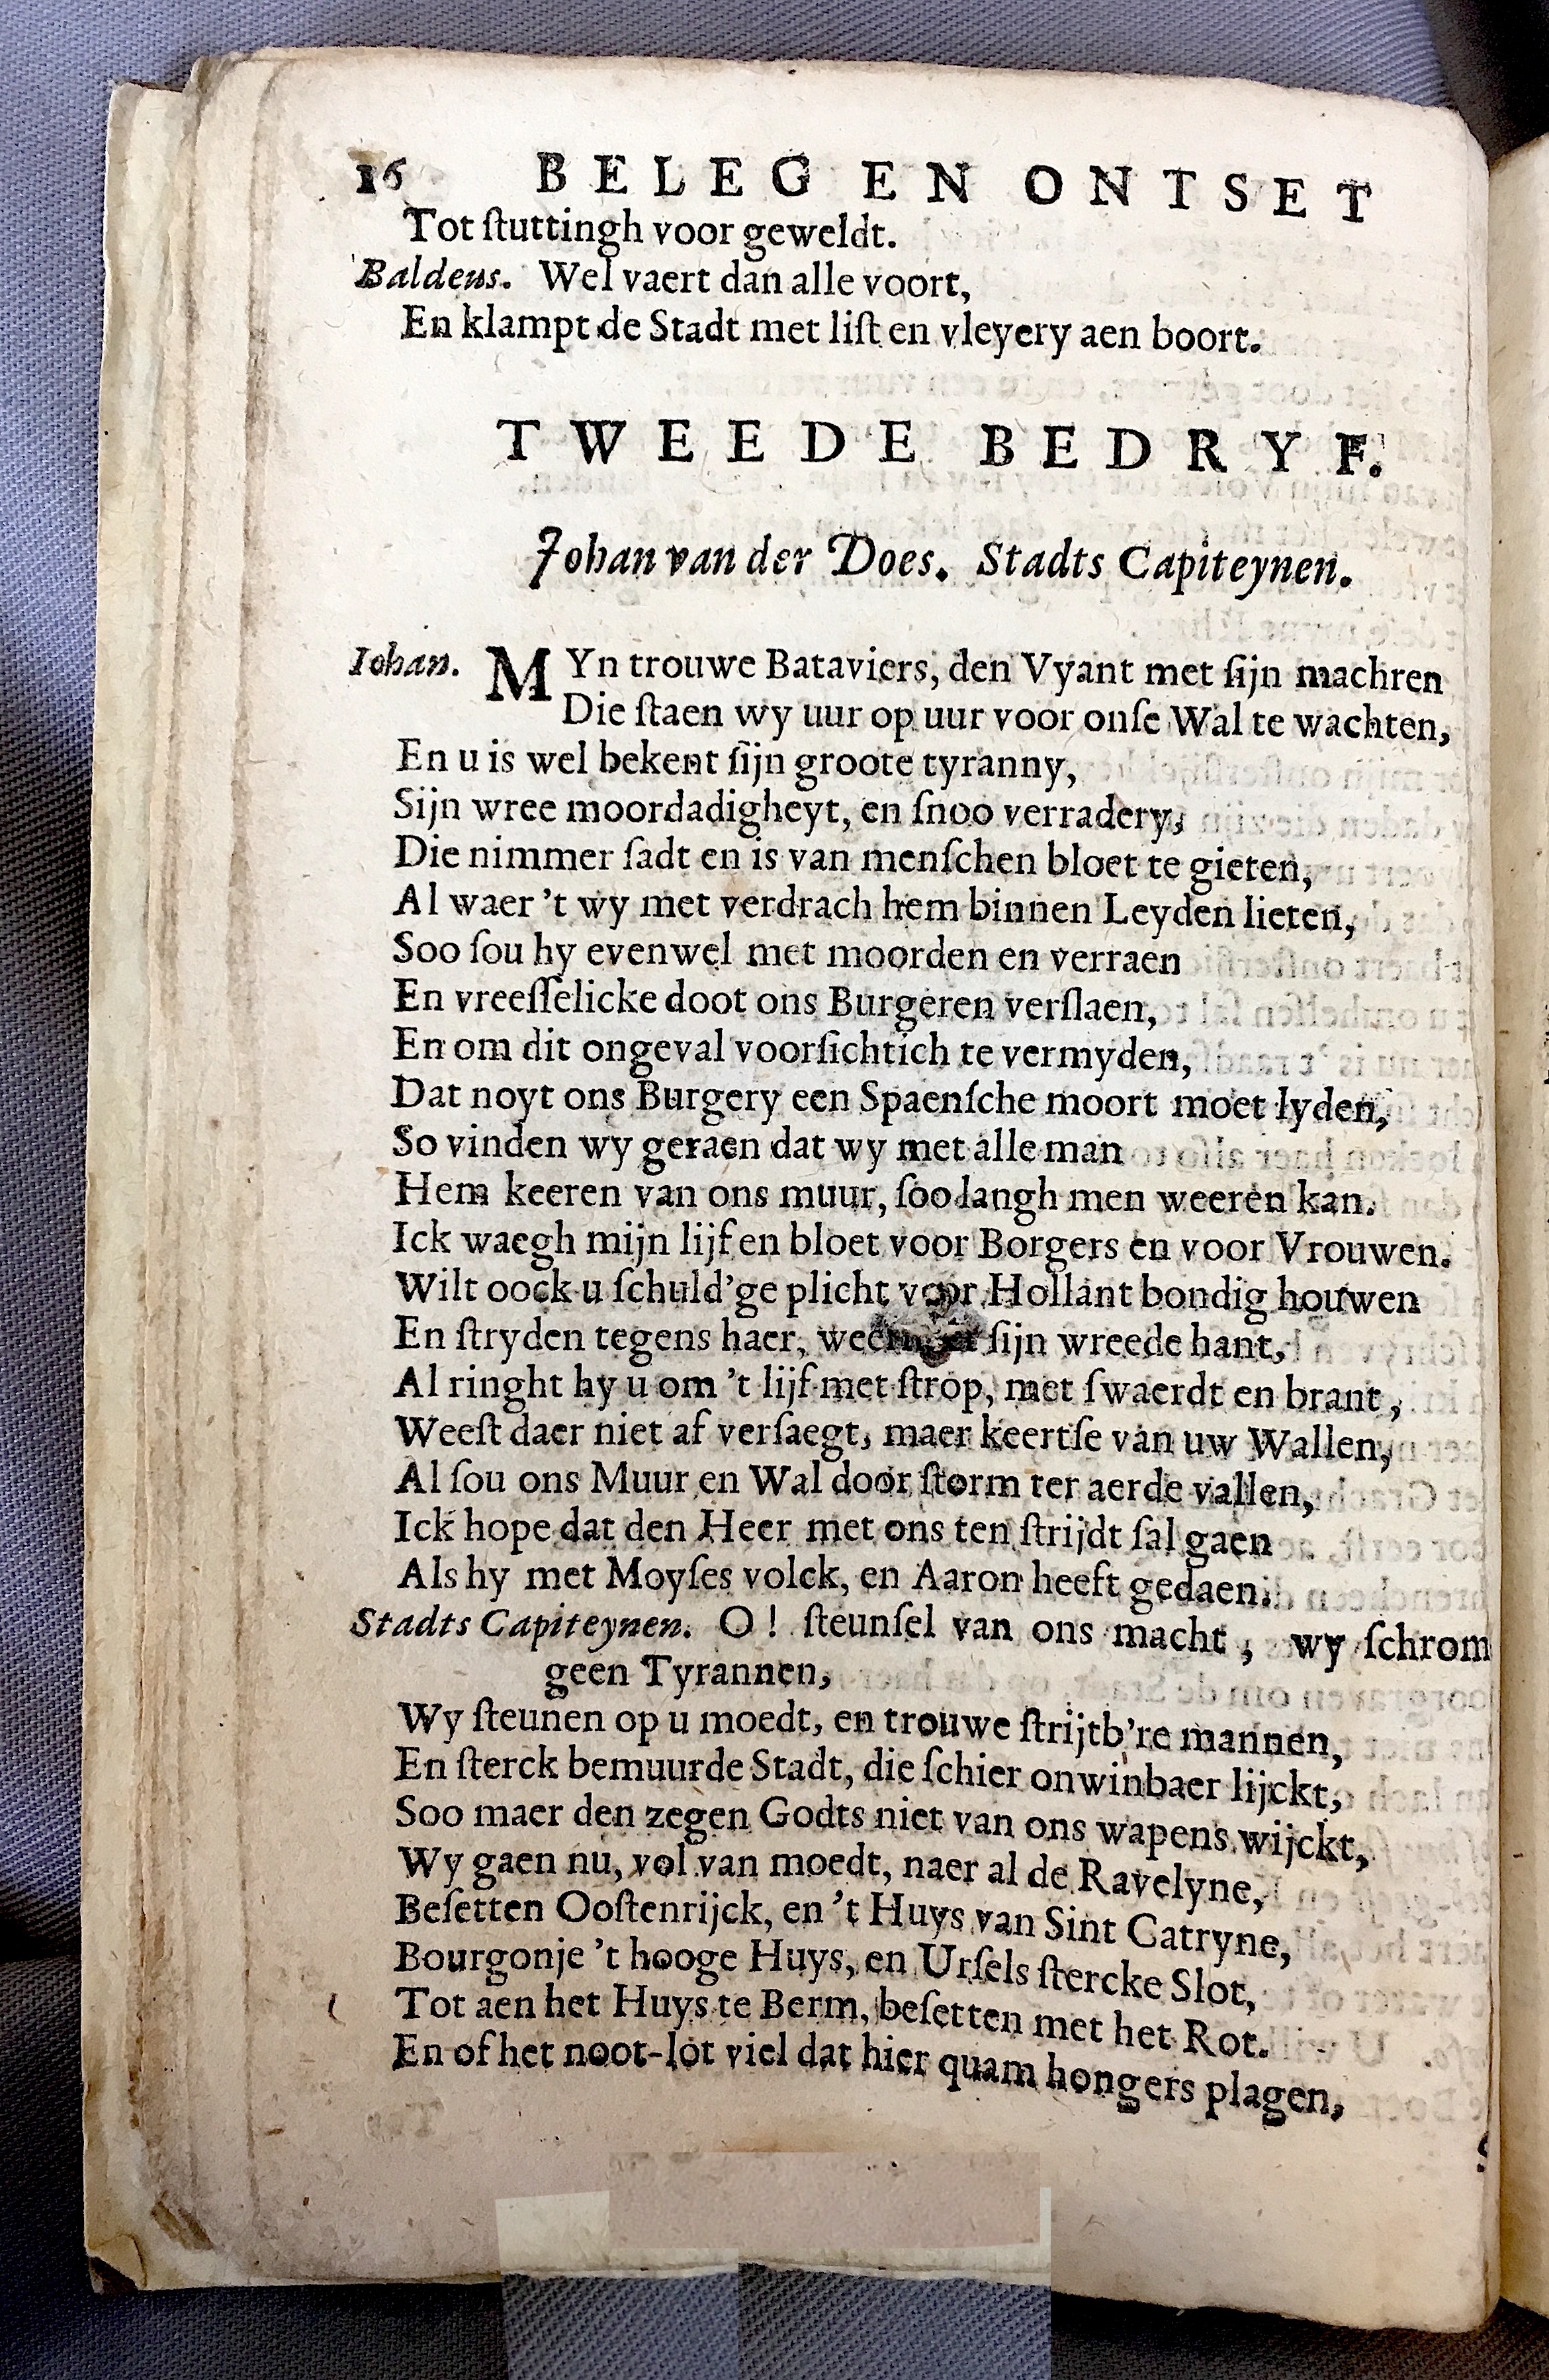 16 BELEG EN ONTSET
Tot ſtuttingh voor geweldt.
Baldeus. Wel vaert dan alle voort,
En klampt de Stadt met liſt en vleyery aen boort.
TWEEDE BEDRYF.
Johan van der Does. Stadts Capiteynen.
Iohan. MYn trouwe Bataviers, den Vyant met ſijn machren
Die ſtaen wy uur op uur voor onſe Wal te wachten,
En u is wel bekent ſijn groote tyranny,
Sijn wree moordadigheyt, en ſnoo verradery,
Die nimmer ſadt en is van menſchen bloet te gieten,
Al waer 't wy met verdrach hem binnen Leyden lieten,
Soo ſou hy evenwel met moorden en verraen
En vreeſſelicke doot ons Burgeren verſlaen,
En om dit ongeval voorſichtich te vermyden,
Dat noyt ons Burgery een Spaenſche moort moet lyden,
So vinden wy geraen dat wy met alle man
Hem keeren van ons muur, ſoo langh men weeren kan.
Ick waegh mijn lijf en bloet voor Borgers en voor Vrouwen.
Wilt oock u ſchuld'ge plicht voor Hollant bondig houwen
En ſtryden tegens haer, ſijn wreede hant,
Al ringht hy u om 't lijf met ſtrop, met ſwaerdt en brant,
Weeſt daer niet af verſaegt, maer keertſe van uw Wallen,
Al ſou ons Muur en Wal door ſtorm ter aerde vallen,
Ick hope dat den Heer met ons ten ſtrijdt ſal gaen
Als hy met Moyſes volck, en Aaron heeft gedaen.
Stadts Capiteynen. O! ſteunſel van ons macht, wy ſchrom
geen Tyrannen,
Wy ſteunen op u moedt, en trouwe ſtrijtb're mannen,
En ſterck bemuurde Stadt, die ſchier onwinbaer lijckt,
Soo maer den zegen Godts niet van ons wapens wijckt,
Wy gaen nu, vol van moedt, naer al de Ravelyne,
Beſetten Ooſtenrijck, en 't Huys van Sint Catryne,
Bourgonje 't hooge Huys, en Urſels ſtercke Slot,
Tot aen het Huys te Berm, beſetten met het Rot.
En of het noot-lot viel dat hier quam hongers plagen,